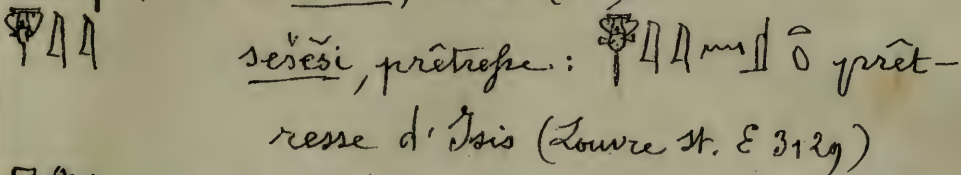 𓏣𓇋𓇋 sešeši, prêtresse : 𓏣𓇋𓇋𓈖𓊨𓏏𓆇 prêt-
resse d'Isis (Louvre st. E 3129)